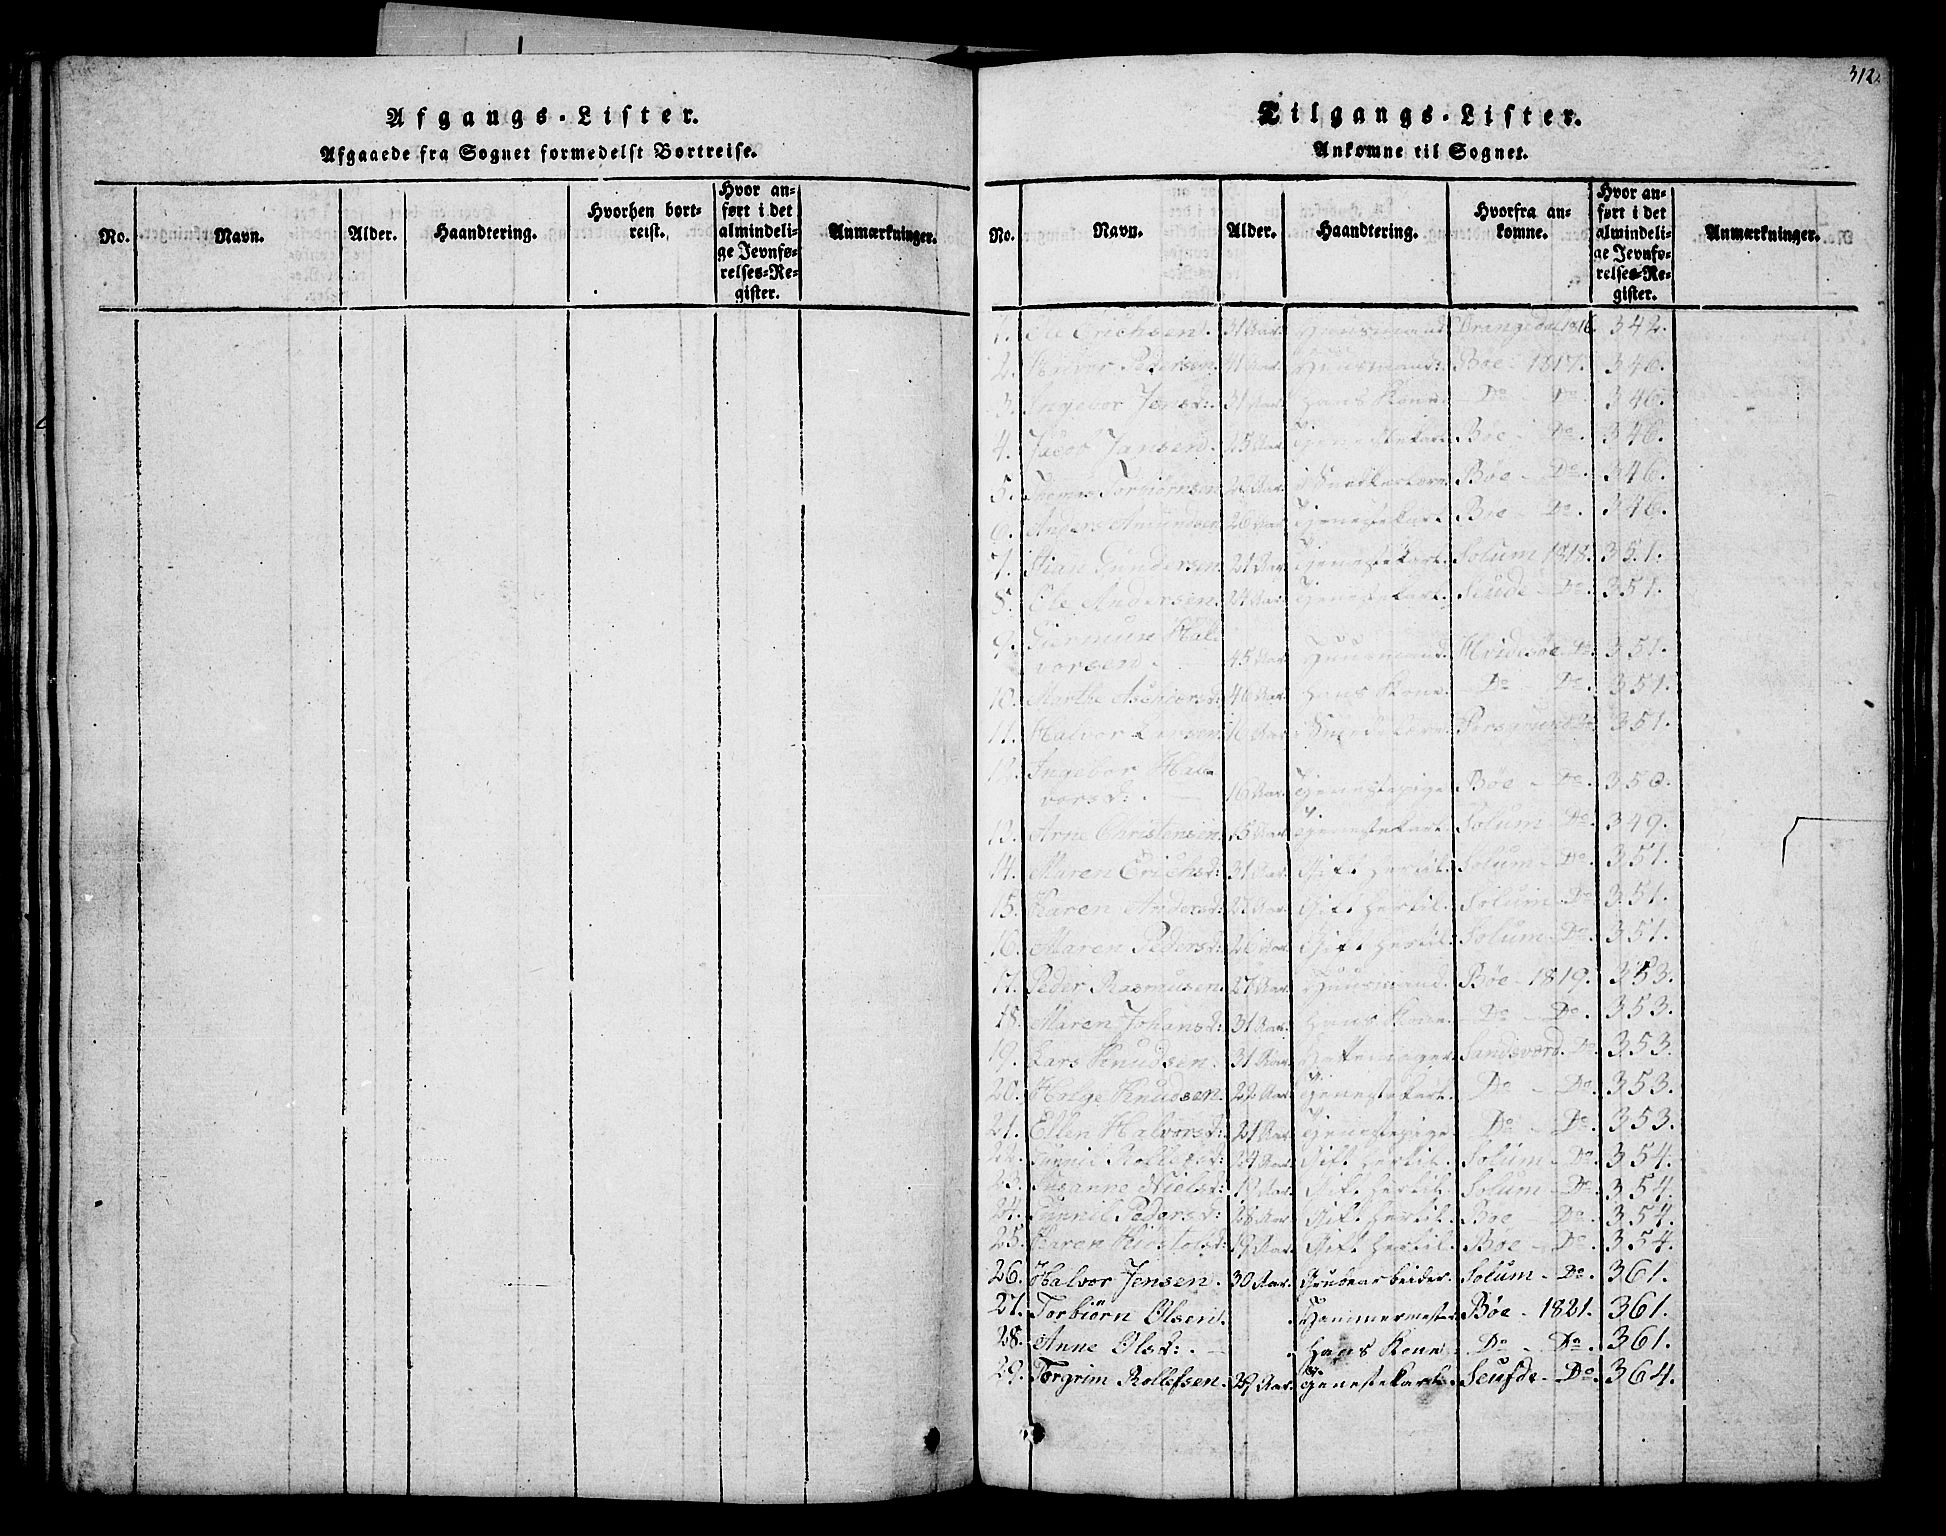 Afgangs-Lister.
Afgaaede fra Sognet formedelst Bortreise.
No. Navn. Alder. Haandtering. Hvorhen bort-
reist. Hvor an-
ført i det
almindeli-
ge Jevnfø-
relses-Re-
gister. Anmærkninger.
312.
Tilgangs-Lister.
Ankomne til Sognet.
No. Navn. Alder. Haandtering. Hvorfra an-
komne. Hvor an-
ført i det
almindeli-
ge Jevnfø-
relses-Re-
gister. Anmærkninger.
1. Ole Erichsen. 31 Aar. Huusmand Drangedal 1816. 342.
2. Halvor Pedersen 41 Aar. Huusmand: Bøe - 1817. 346.
3. Ingebor Jensd: 31 Aar. Hans Kone. Do Do. 346.
4. Jacob Jansen. 25 Aar. Tjenestekarl. Bøe - Do. 346.
5. Torbiörnsen Aar. Bøe - Do. 346.
6. Anders Amundsen 26 Aar. Tjenestekarl. Bøe - Do. 346.
7. Gundersen 21 Aar. Tjenestekarl. Solum 1818. 351.
8. Ole Andersen. 24 Aar. Tjenestekarl. Seude - Do. 351.
9. Hal-
vorsen. 45 Aar. Huusmand. Hvidesøe. Do. 351.
10. Marthe 46 Aar. Hans Kone. Do Do. 351.
11. Halvor 16 Aar Porsgrund Do. 351.
12. Ingebor Hal-
vorsd: 16 Aar. Tjenestepige Bøe - Do. 350.
13. Arne Christensen. 15 Aar. Tjenestekarl. Solum - Do. 349.
14. Maren Erichsd: 31 Aar. Gift hertil. Solum - Do. 351.
15. Karen Andersd: Aar. Gift hertil. Solum - Do. 351.
16. Maren Pedersd: 26 Aar. Gift hertil. Solum - Do. 351.
17. Peder Rasmusen. 27 Aar. Huusmand. Bøe - 1819. 353.
18. Maren Johansd: 31 Aar. Hans Kone. Do - Do. 353.
19. Lars Knudsen. 31 Aar. Sandsverd. Do. 353.
20. Helge Knudsen 22 Aar. Tjenestekarl. Do - Do. 353.
21. Ellen Halvorsd: 21 Aar. Tjenestepige. Do - Do. 353.
22. Gunnil 24 Aar. Gift hertil. Solum - Do. 354.
23. Susanne Nielsd: Aar. Gift hertil. Solum - Do. 354.
24. Gunnil Pedersd: 28 Aar. Gift hertil. Bøe - Do. 354.
25. Karen Kiostolsd: 19 Aar. Gift hertil. Bøe - Do. 354.
26. Halvor Jensen. 30 Aar. Grubearbeider. Solum - Do. 361.
27. Torbiörn Olsen. Hammermester Bøe - 1821. 361.
28. Anne Olsd: . Hans Kone - Do - Do. 361.
29. Torgrim Rollefsen. 29 Aar. Tjenestekarl. Seufde - Do. 364.